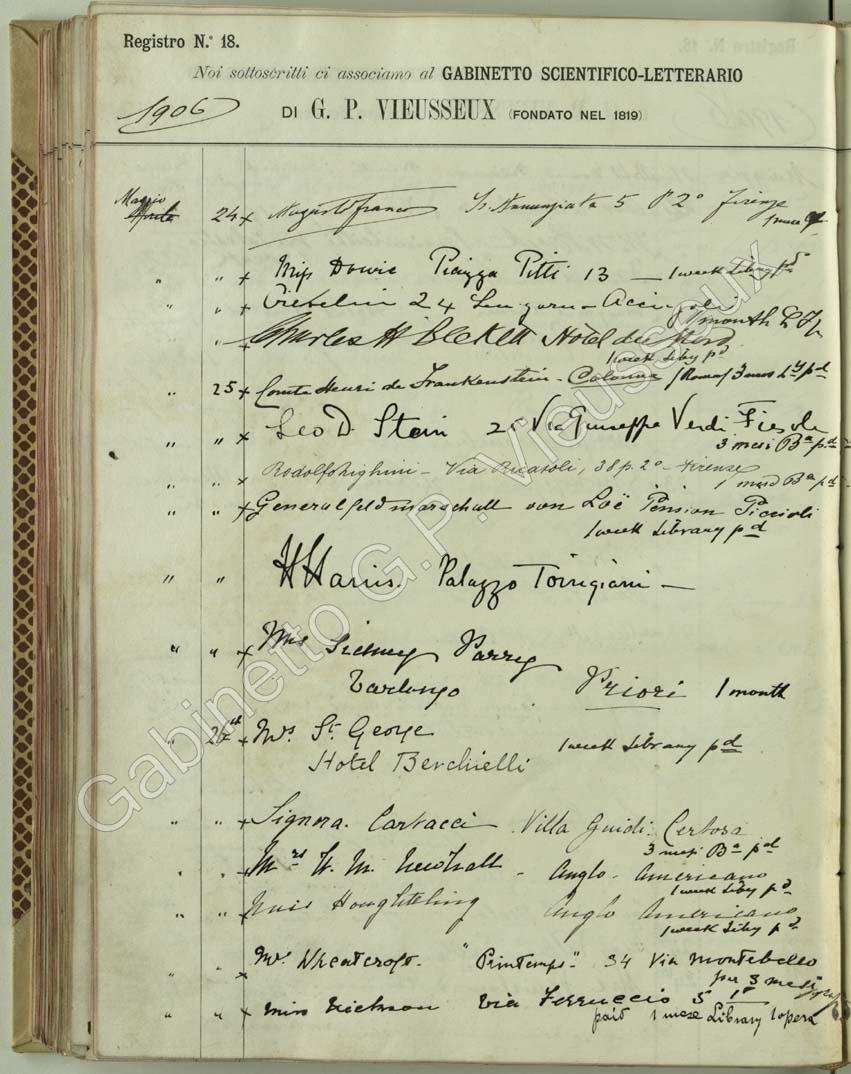 Registro N.° 18.
Noi sottoscritti ci associamo al GABINETTO SCIENTIFICO-LETTERARIO
1906
DI G. P. VIEUSSEUX (FONDATO NEL 1819)
Maggio
Aprile
24 x Augusto Franco Ss. Annunziata 5 P 2° Firenze
1 mese
" " x Miss Dowie Piazza Pitti 13 — 1 week Liby pd
" " x 24 Lungarno Acciajoli
1 month L
" " x Charles H. Beckett Hotel du Nord
1 week Liby pd
" 25 x Comte Henri de Frankenstein - Colonna (Roma) 3 mos Ly pd
" " x Leo D. Stein 2 Via Giuseppe Verdi Fiesole
3 mesi Ba pd
" " x Rodolfo Righini - Via Ricasoli, 38 p. 2° - Firenze
1 mese Ba pd
" " x Generalfeldmarschall von Loë Pension Piccioli
1 week Library pd
" " H Harris. Palazzo Torrigiani —
" " x Mrs Sidney Parry
Varlungo Priori 1 month
" 26 x Mrs St. George
1 week Library pd
Hotel Berchielli
" " x Signora Carbacci Villa Guidi. Certosa
3 mesi Ba pd
" " x Mrs H. M. Newhall - Anglo-Americano
1 week Liby pd
" " x Miss Houghteling Anglo Americano
1 week Liby pd
" " x Mr Wheatcroft. "Printemps" 34 Via Montebello
per 3 mesi
" " x Miss Nickson Via Ferruccio 5 1°
paid 1 mese Library 1 opera
Gabinetto G.P. Vieusseux